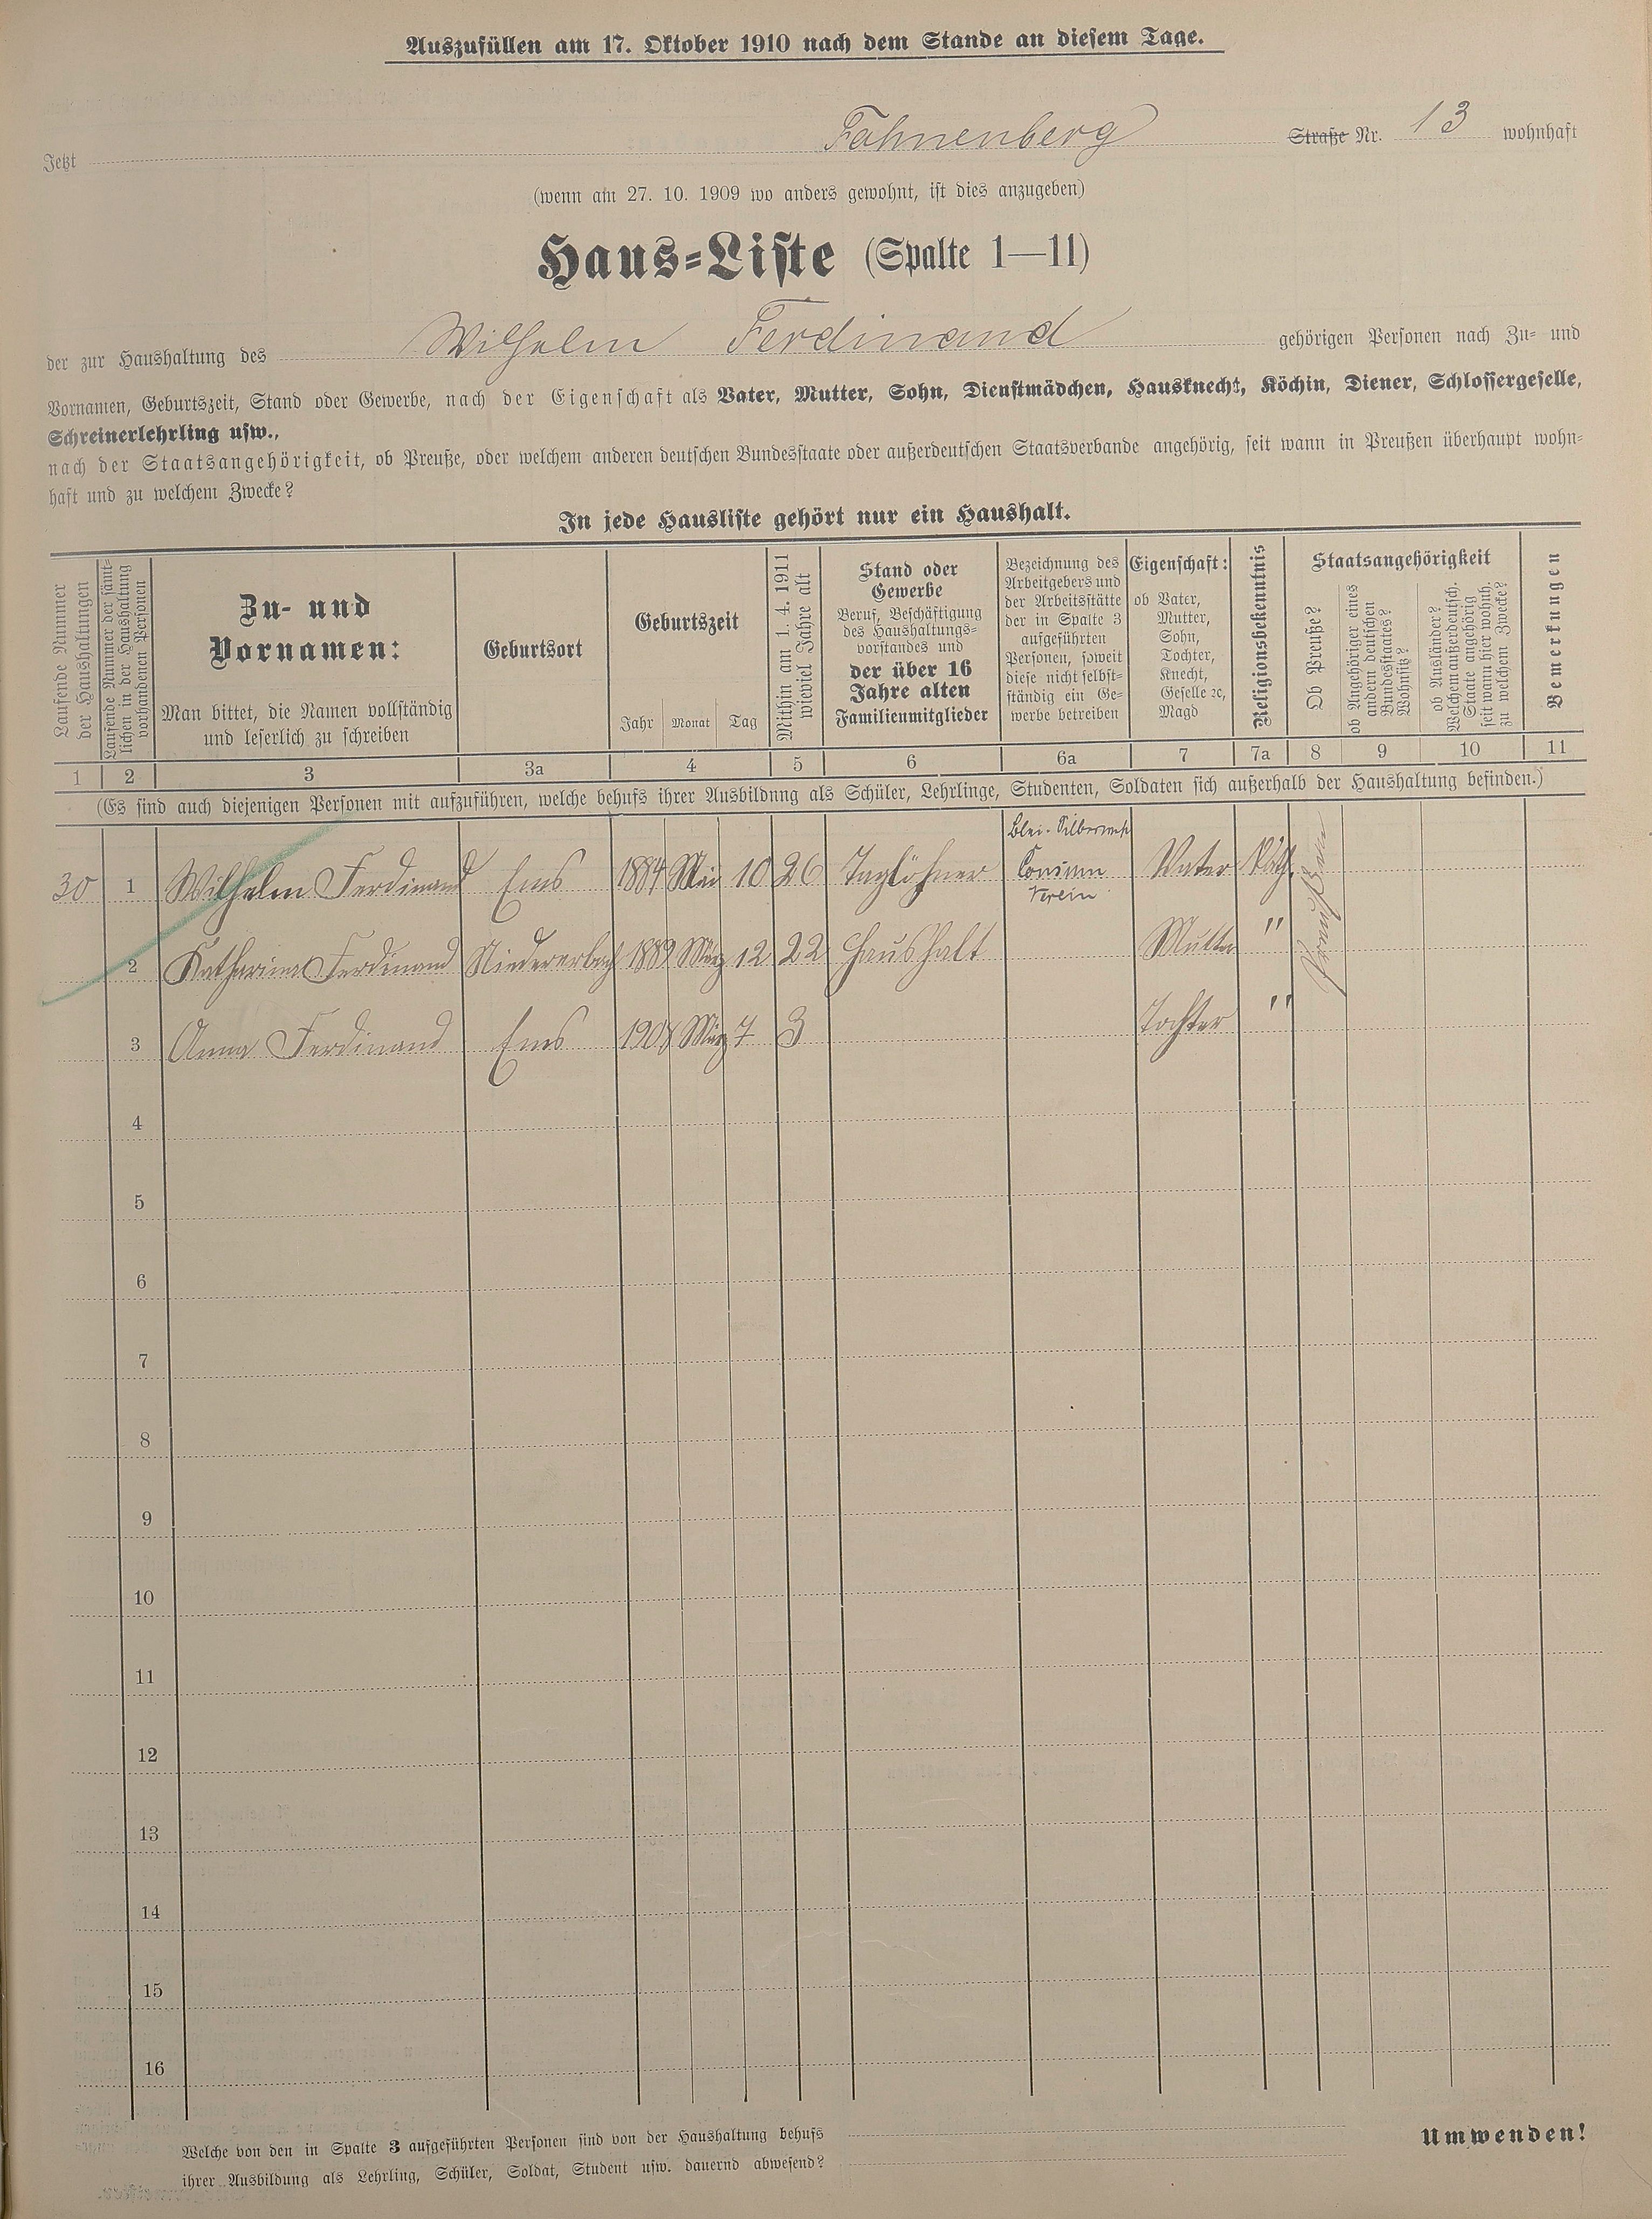 Auszufüllen am 17. Oktober 1910 nach dem Stande an diesem Tage.
Jetzt Fahnenberg Straße Nr. 13 wohnhaft
(wenn am 27. 10. 1909 wo anders gewohnt, ist dies anzugeben)
Haus-Liste (Spalte 1—11)
der zur Haushaltung des Wilhelm Ferdinand gehörigen Personen nach Zu- und
Vornamen, Geburtszeit, Stand oder Gewerbe, nach der Eigenschaft als Vater, Mutter, Sohn, Dienstmädchen, Hausknecht, Köchin, Diener, Schlossergeselle,
Schreinerlehrling usw.,
nach der Staatsangehörigkeit, ob Preuße, oder welchem anderen deutschen Bundesstaate oder außerdeutschen Staatsverbande angehörig, seit wann in Preußen überhaupt wohn-
haft und zu welchem Zwecke?
In jede Hausliste gehört nur ein Haushalt.
Laufende Nummer
der Haushaltungen
Laufende Nummer der sämt-
lichen in der Haushaltung
vorhandenen Personen
Zu- und
Vornamen:
Man bittet, die Namen vollständig
und leserlich zu schreiben
Geburtsort
Geburtszeit
Jahr Monat Tag
Mithin am 1. 4. 1911
wieviel Jahre alt
Stand oder
Gewerbe
Beruf, Beschäftigung
des Haushaltungs-
vorstandes und
der über 16
Jahre alten
Familienmitglieder
Bezeichnung des
Arbeitgebers und
der Arbeitsstätte
der in Spalte 3
aufgeführten
Personen, soweit
diese nicht selbst-
ständig ein Ge-
werbe betreiben
Eigenschaft:
ob Vater,
Mutter,
Sohn,
Tochter,
Knecht,
Geselle ꝛc,
Magd
Religionsbekenntnis
Staatsangehörigkeit
Ob Preuße?
ob Angehöriger eines
andern deutschen
Bundesstaates?
Wohnsitz?
ob Ausländer?
Welchem außerdeutsch.
Staate angehörig
seit wann hier wohnh.
zu welchem Zwecke?
Bemerkungen
1 2 3 3a 4 5 6 6a 7 7a 8 9 10 11
(Es sind auch diejenigen Personen mit aufzuführen, welche behufs ihrer Ausbildung als Schüler, Lehrlinge, Studenten, Soldaten sich außerhalb der Haushaltung befinden.)
30 1 Wilhelm Ferdinand Ems 1884 Mai 10 26 Taglöhner
Consum
Verein
Vater Kath.
Preußen
2 Katharina Ferdinand Niedererbach 1889 März 12 22 Haushalt Mutter "
3 Anna Ferdinand Ems 1908 März 7 3 Tochter "
4
5
6
7
8
9
10
11
12
13
14
15
16
Welche von den in Spalte 3 aufgeführten Personen sind von der Haushaltung behufs
ihrer Ausbildung als Lehrling, Schüler, Soldat, Student usw. dauernd abwesend?
Umwenden!